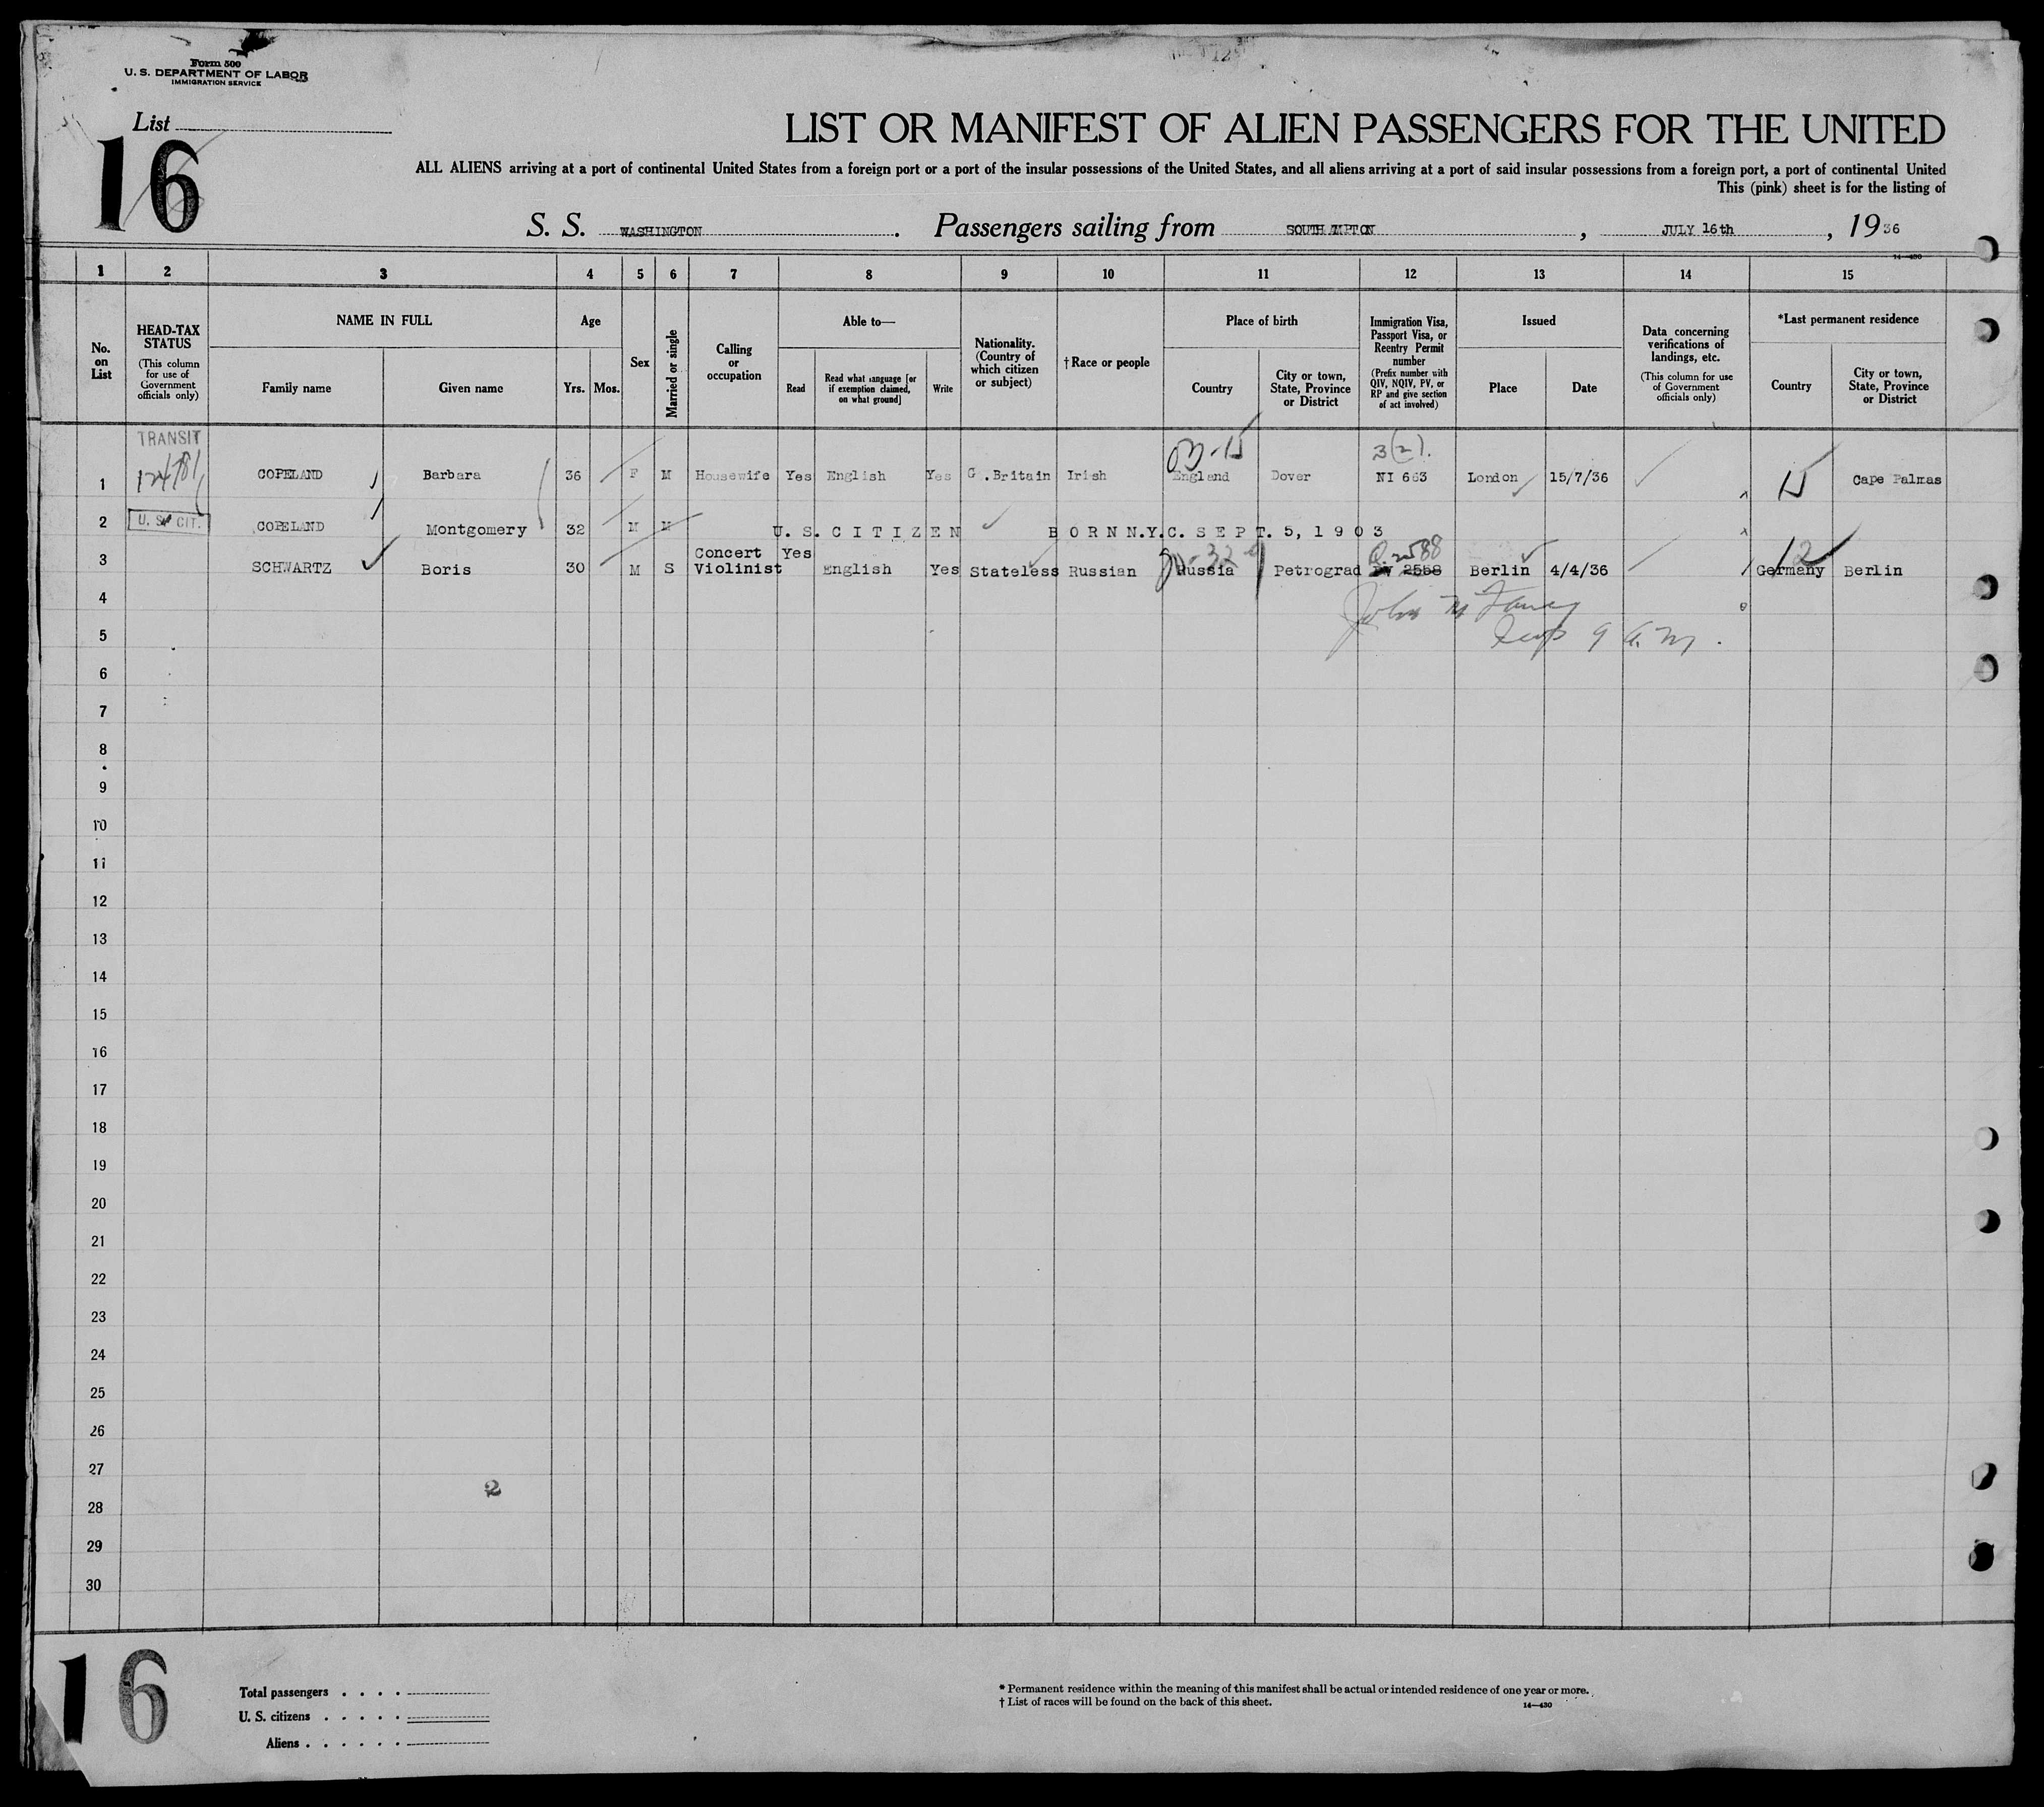 Form 500
U. S. DEPARTMENT OF LABOR
IMMIGRATION SERVICE
List
16
LIST OR MANIFEST OF ALIEN PASSENGERS FOR THE UNITED
ALL ALIENS arriving at a port of continental United States from a foreign port or a port of the insular possessions of the United States, and all aliens arriving at a port of said insular possessions from a foreign port, a port of continental United
This (pink) sheet is for the listing of
S. S. WASHINGTON. Passengers sailing from SOUTHAMPTON, JULY 16th, 1936
14—430
1 2 3 4 5 6 7 8 9 10 11 12 13 14 15
No. on List
HEAD-TAX STATUS
(This column for use of Government officials only)
NAME IN FULL
Family name
Given name
Age
Yrs. Mos.
Sex
Married or single
Calling or occupation
Able to—
Read
Read what language [or if exemption claimed, on what ground]
Write
Nationality. (Country of which citizen or subject)
†Race or people
Place of birth
Country
City or town, State, Province or District
Immigration Visa, Passport Visa, or Reentry Permit number
(Prefix number with QIV, NQIV, PV, or RP and give section of act involved)
Issued
Place
Date
Data concerning verifications of landings, etc.
(This column for use of Government officials only)
*Last permanent residence
Country
City or town, State, Province or District
TRANSIT
3(2).
1 COPELAND Barbara 36 F M Housewife Yes English Yes G.Britain Irish England Dover NI 663 London 15/7/36 15 Cape Palmas
2 U. S. CIT. COPELAND Montgomery 32 M M U. S. CITIZEN BORN N.Y.C. SEPT. 5, 1903
3 SCHWARTZ Boris 30 M S Concert Violinist Yes English Yes Stateless Russian Russia Petrograd 2588 Berlin 4/4/36 12 Germany Berlin
4
5
6
7
8
9
10
11
12
13
14
15
16
17
18
19
20
21
22
23
24
25
26
27
2
28
29
30
16
Total passengers . . . .
U. S. citizens . . . . .
Aliens . . . . . .
* Permanent residence within the meaning of this manifest shall be actual or intended residence of one year or more.
† List of races will be found on the back of this sheet.
14—430